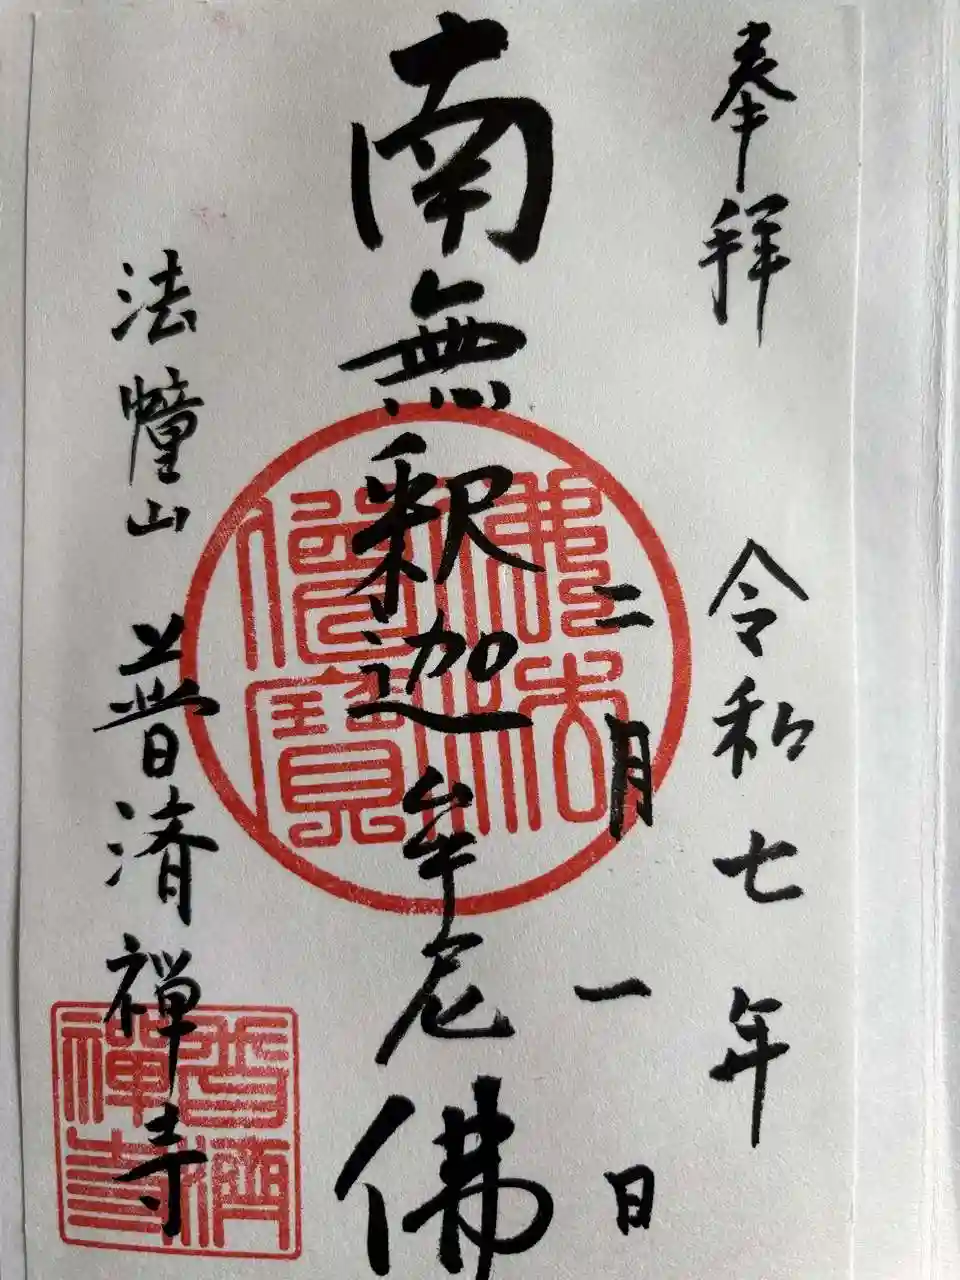 奉拝
令和七年
二月一日
南無釈迦牟尼佛
法幢山 普済禅寺
佛法僧寳
普濟禪寺